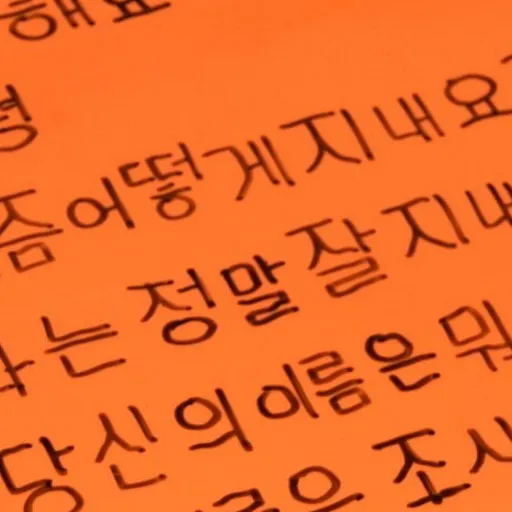 해요
녕
즘어떻게지내요
나는정말잘지내
당신의이름은뭐
름은조시